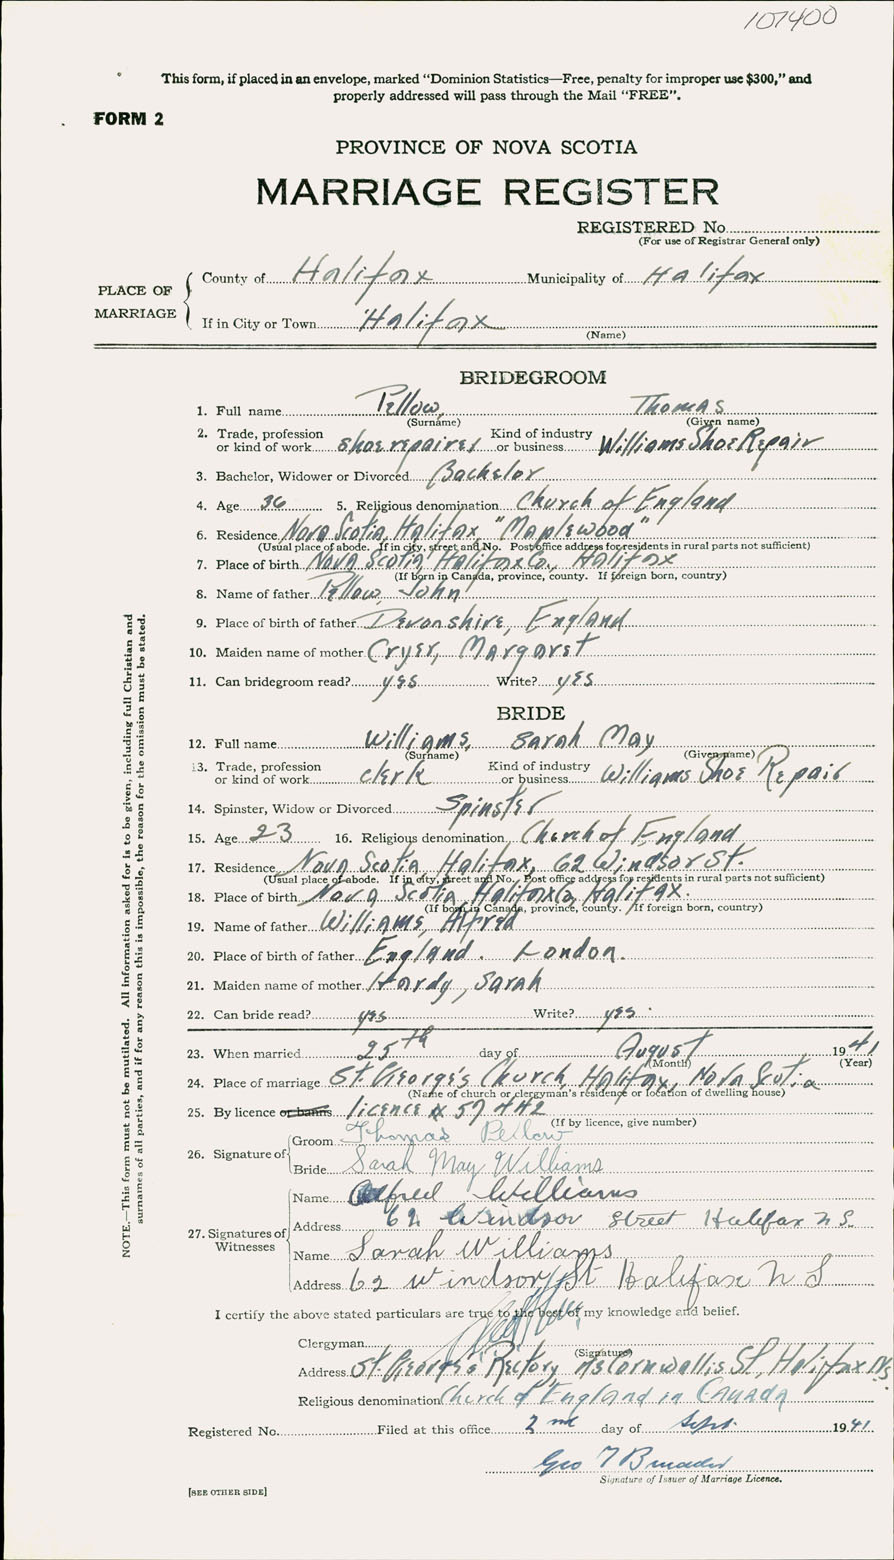 107400
This form, if placed in an envelope, marked "Dominion Statistics—Free, penalty for improper use $300," and
properly addressed will pass through the Mail "FREE".
FORM 2
PROVINCE OF NOVA SCOTIA
MARRIAGE REGISTER
REGISTERED No.
(For use of Registrar General only)
PLACE OF MARRIAGE
County of Halifax Municipality of Halifax
If in City or Town Halifax
(Name)
BRIDEGROOM
1. Full name Pellow, Thomas
(Surname) (Given name)
2. Trade, profession or kind of work shoe repairer Kind of industry or business Williams Shoe Repair
3. Bachelor, Widower or Divorced Bachelor
4. Age 36 5. Religious denomination Church of England
6. Residence Nova Scotia, Halifax "Maplewood"
(Usual place of abode. If in city, street and No. Post office address for residents in rural parts not sufficient)
7. Place of birth Nova Scotia, Halifax Co., Halifax
(If born in Canada, province, county. If foreign born, country)
8. Name of father Pellow, John
9. Place of birth of father Devonshire, England
10. Maiden name of mother Cryer, Margaret
11. Can bridegroom read? yes Write? yes
BRIDE
12. Full name Williams, Sarah May
(Surname) (Given name)
13. Trade, profession or kind of work clerk Kind of industry or business Williams Shoe Repair
14. Spinster, Widow or Divorced Spinster
15. Age 23 16. Religious denomination Church of England
17. Residence Nova Scotia Halifax, 62 Windsor St.
(Usual place of abode. If in city, street and No. Post office address for residents in rural parts not sufficient)
18. Place of birth Nova Scotia Halifax Co, Halifax.
(If born in Canada, province, county. If foreign born, country)
19. Name of father Williams, Alfred
20. Place of birth of father England. London.
21. Maiden name of mother Hardy, Sarah
22. Can bride read? yes Write? yes.
23. When married 25th day of August 1941
(Month) (Year)
24. Place of marriage St. George's Church, Halifax, Nova Scotia
(Name of church or clergyman's residence or location of dwelling house)
25. By licence or banns licence # 57442
(If by licence, give number)
26. Signature of
Groom Thomas Pellow
Bride Sarah May Williams
27. Signatures of Witnesses
Name Alfred Williams
Address 62 Windsor Street Halifax N S.
Name Sarah Williams
Address 62 Windsor St Halifax N S
I certify the above stated particulars are true to the best of my knowledge and belief.
Clergyman
(Signature)
Address St. George's Rectory Cornwallis St., Halifax N.S.
Religious denomination Church of England in CANADA
Registered No. Filed at this office 2nd day of Sept. 1941.
Geo T
Signature of Issuer of Marriage Licence.
[SEE OTHER SIDE]
NOTE.—This form must not be mutilated. All information asked for is to be given, including full Christian and
surnames of all parties, and if for any reason this is impossible, the reason for the omission must be stated.